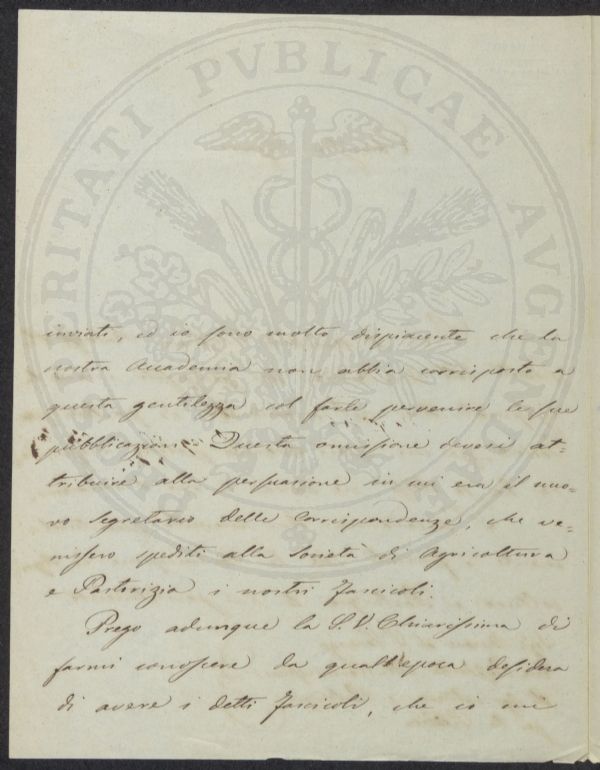 PROSPERITATI PVBLICAE AVGENDAE
inviati, ed io sono molto dispiacente che la
nostra Accademia non abbia corrisposto a
questa gentilezza col farle pervenire le sue
pubblicazioni. Questa omissione devesi at-
tribuire alla persuasione in cui era il nuo-
vo Segretario delle Corrispondenze, che ve-
nissero spediti alla Società di Agricoltura
e Pastorizia i nostri Fascicoli.
Prego adunque la S. V. Chiarissima di
farmi conoscere da quall'epoca desidera
di avere i detti Fascicoli, che io mi